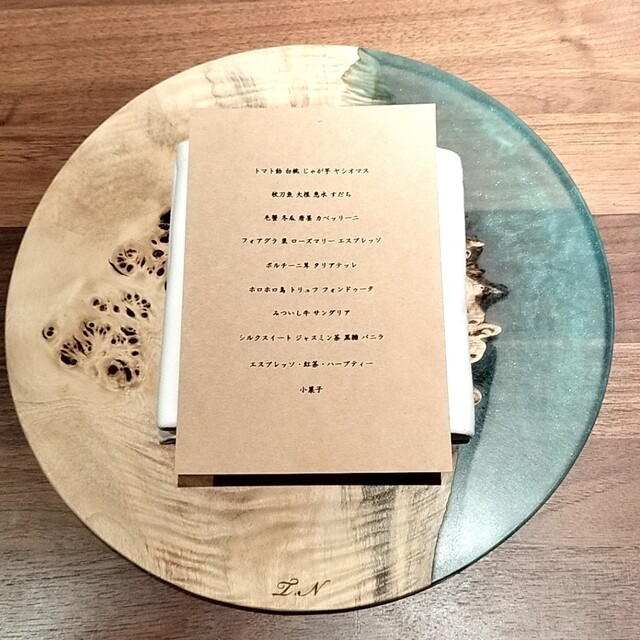 トマト飴 白桃 じゃが芋 ヤシオマス
秋刀魚 大根 恵水 すだち
毛蟹 冬瓜 唐墨 カペッリーニ
フォアグラ 栗 ローズマリー エスプレッソ
ポルチーニ茸 タリアテッレ
ホロホロ鳥 トリュフ フォンドゥータ
みついし牛 サンダリア
シルクスイート ジャスミン茶 黒糖 バニラ
エスプレッソ・紅茶・ハーブティー
小菓子
T.N